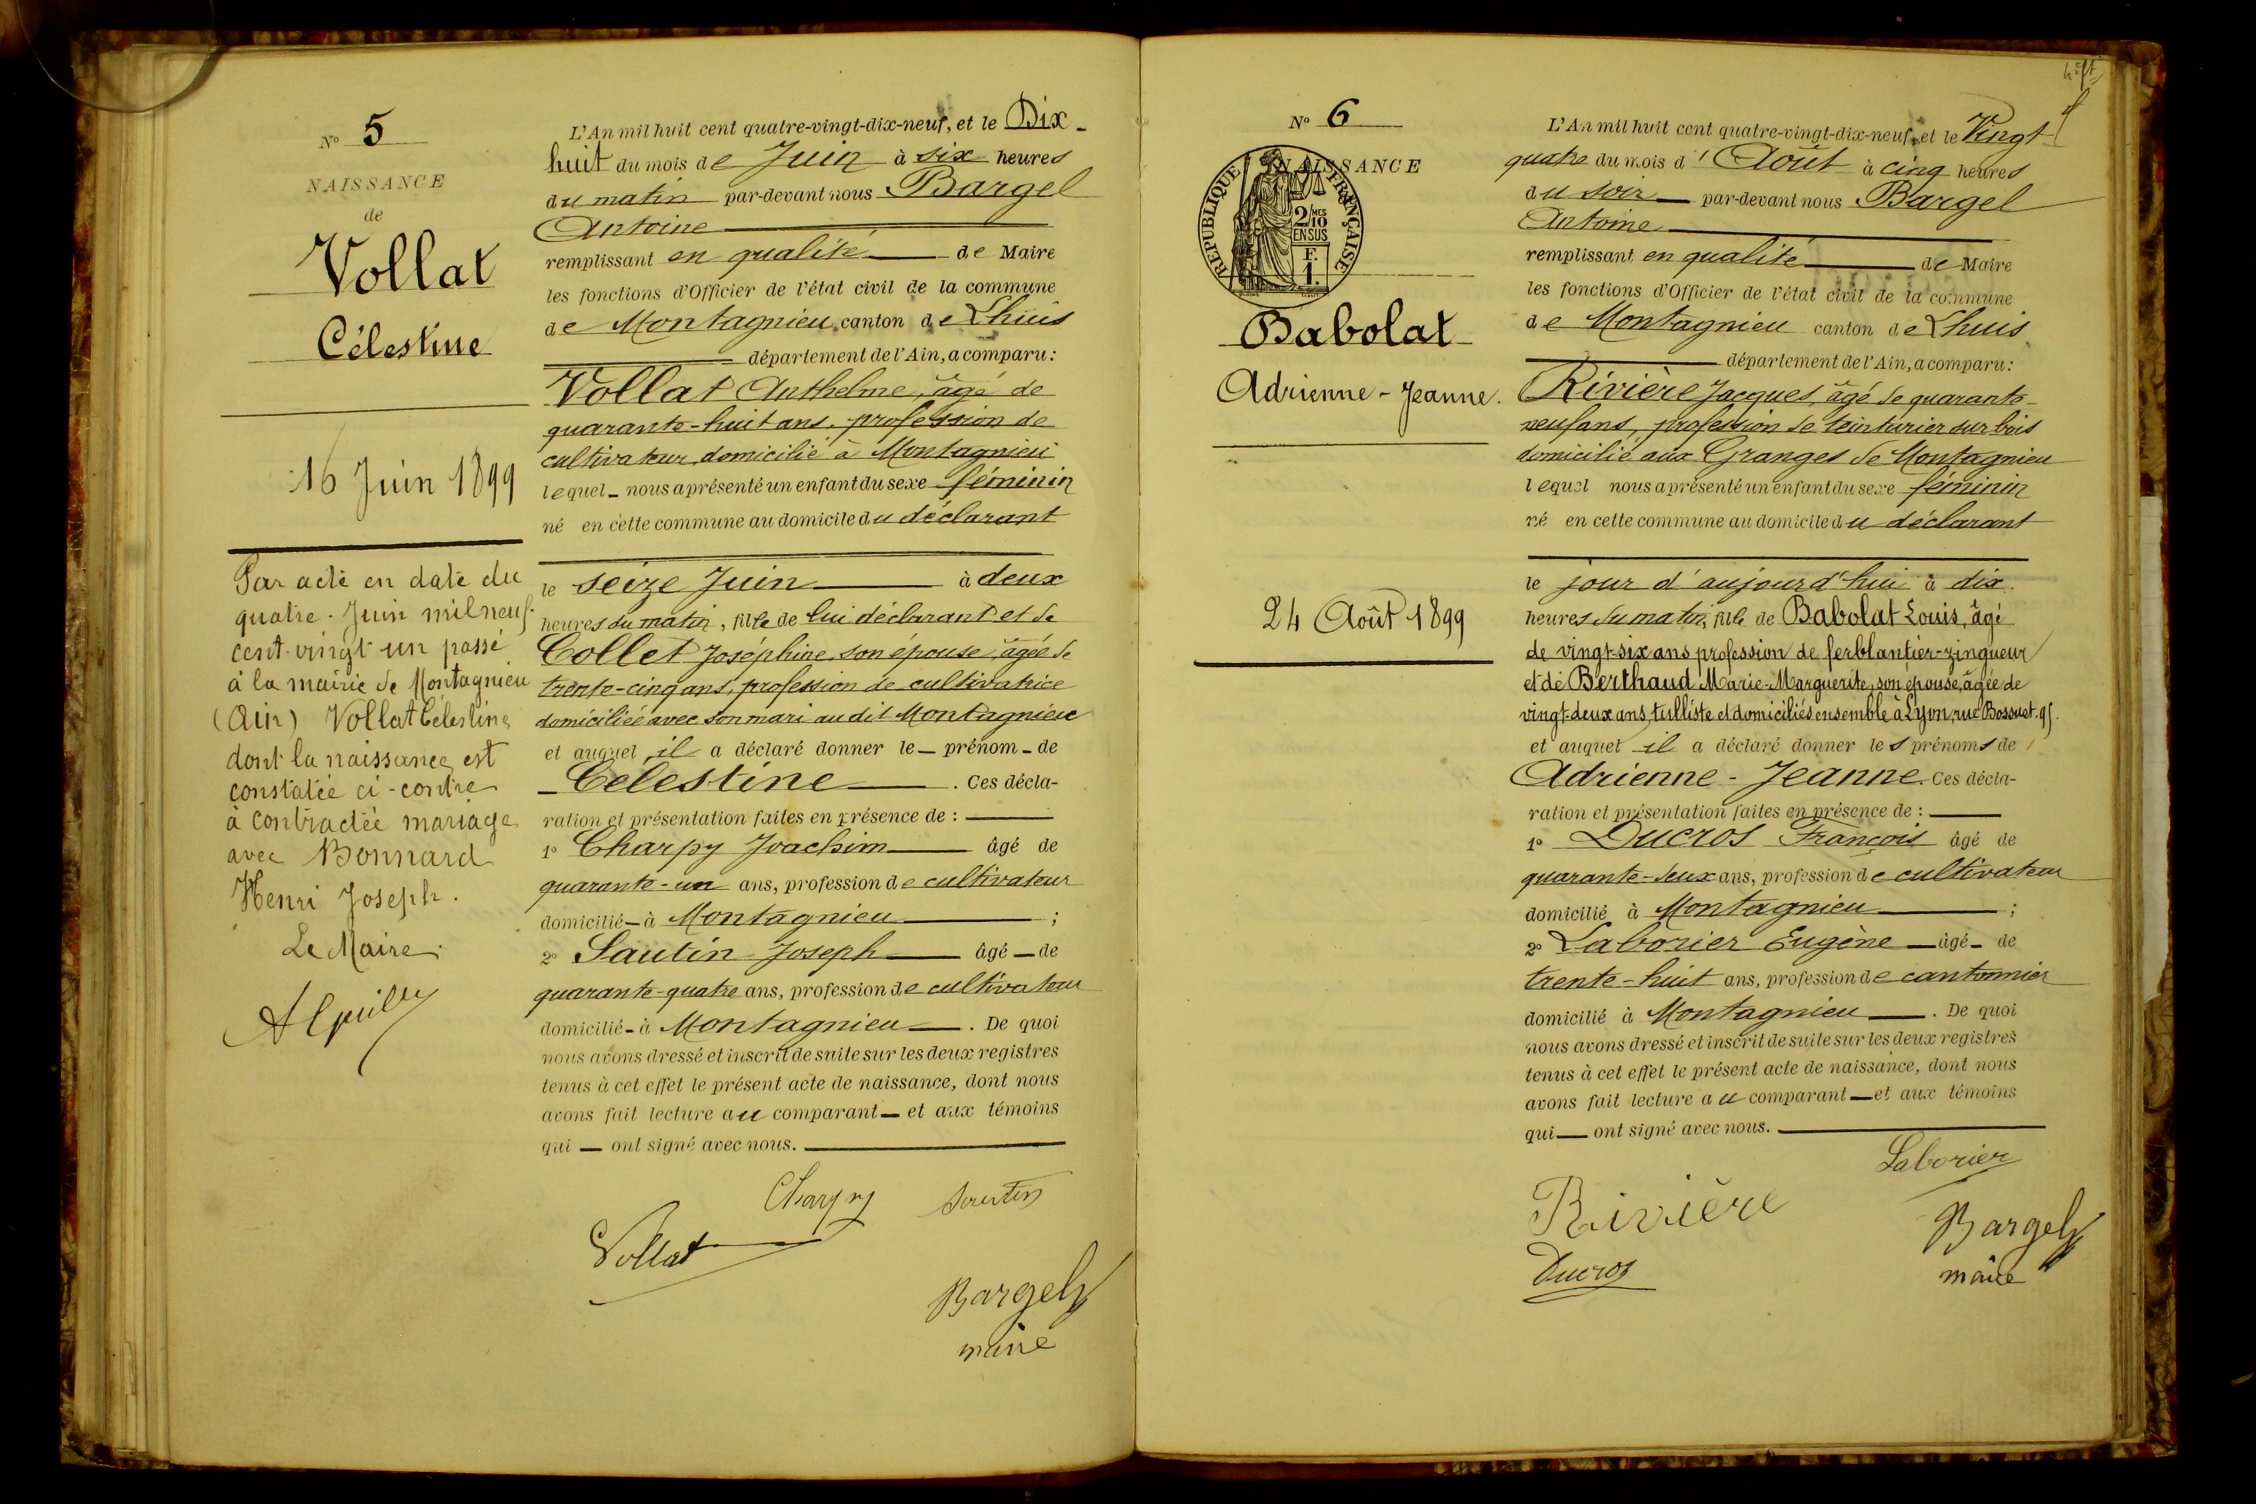 N° 5
NAISSANCE
de
Vollat
Célestine
16 Juin 1899
Par acte en date du
quatre Juin mil neuf
cent vingt un passé
à la mairie de Montagnieu
(Ain) Vollat Célestine
dont la naissance est
constatée ci-contre
à contractée mariage
avec Bonnard
Henri Joseph.
Le Maire.
L'An mil huit cent quatre-vingt-dix-neuf, et le Dix-
huit du mois de Juin à six heures
du matin par-devant nous Bargel
Antoine
remplissant en qualité de Maire
les fonctions d'Officier de l'état civil de la commune
de Montagnieu canton de Lhuis
département de l'Ain, a comparu:
Vollat Anthelme, âgé de
quarante-huit ans, profession de
cultivateur, domicilié à Montagnieu
lequel nous a présenté un enfant du sexe féminin
né en cette commune au domicile du déclarant
le seize Juin à deux
heures du matin, fille de lui déclarant et de
Collet Joséphine, son épouse, âgée de
trente-cinq ans, profession de cultivatrice
domiciliée avec son mari au dit Montagnieu
et auquel il a déclaré donner le prénom de
Célestine. Ces décla-
ration et présentation faites en présence de :
1° Charpy Joachim âgé de
quarante-un ans, profession de cultivateur
domicilié à Montagnieu ;
2° Sautin Joseph âgé de
quarante-quatre ans, profession de cultivateur
domicilié à Montagnieu. De quoi
nous avons dressé et inscrit de suite sur les deux registres
tenus à cet effet le présent acte de naissance, dont nous
avons fait lecture au comparant et aux témoins
qui ont signé avec nous.
Charpy Sautin
Vollat
Bargel
maire
N° 6
NAISSANCE
RÉPUBLIQUE FRANÇAISE
2/10 MES
EN SUS
F.
1.
Babolat
Adrienne-Jeanne.
24 Août 1899
L'An mil huit cent quatre-vingt-dix-neuf, et le Vingt
quatre du mois d'Août à cinq heures
du soir par-devant nous Bargel
Antoine
remplissant en qualité de Maire
les fonctions d'Officier de l'état civil de la commune
de Montagnieu canton de Lhuis
département de l'Ain, a comparu:
Rivière Jacques, âgé de quarante-
neuf ans, profession de teinturier sur bois
domicilié aux Granges de Montagnieu
lequel nous a présenté un enfant du sexe féminin
né en cette commune au domicile du déclarant
le jour d'aujourd'hui à dix
heures du matin, fille de Babolat Louis, âgé
de vingt-six ans profession de ferblantier-zingueur
et de Berthaud Marie-Marguerite, son épouse, âgée de
vingt-deux ans, tulliste et domiciliés ensemble à Lyon, rue Bossuet. 95.
et auquel il a déclaré donner les prénoms de
Adrienne-Jeanne. Ces décla-
ration et présentation faites en présence de :
1° Ducros François âgé de
quarante-deux ans, profession de cultivateur
domicilié à Montagnieu ;
2° Laborier Eugène âgé de
trente-huit ans, profession de cantonnier
domicilié à Montagnieu. De quoi
nous avons dressé et inscrit de suite sur les deux registres
tenus à cet effet le présent acte de naissance, dont nous
avons fait lecture au comparant et aux témoins
qui ont signé avec nous.
Laborier
Rivière
Bargel
Ducros
maire